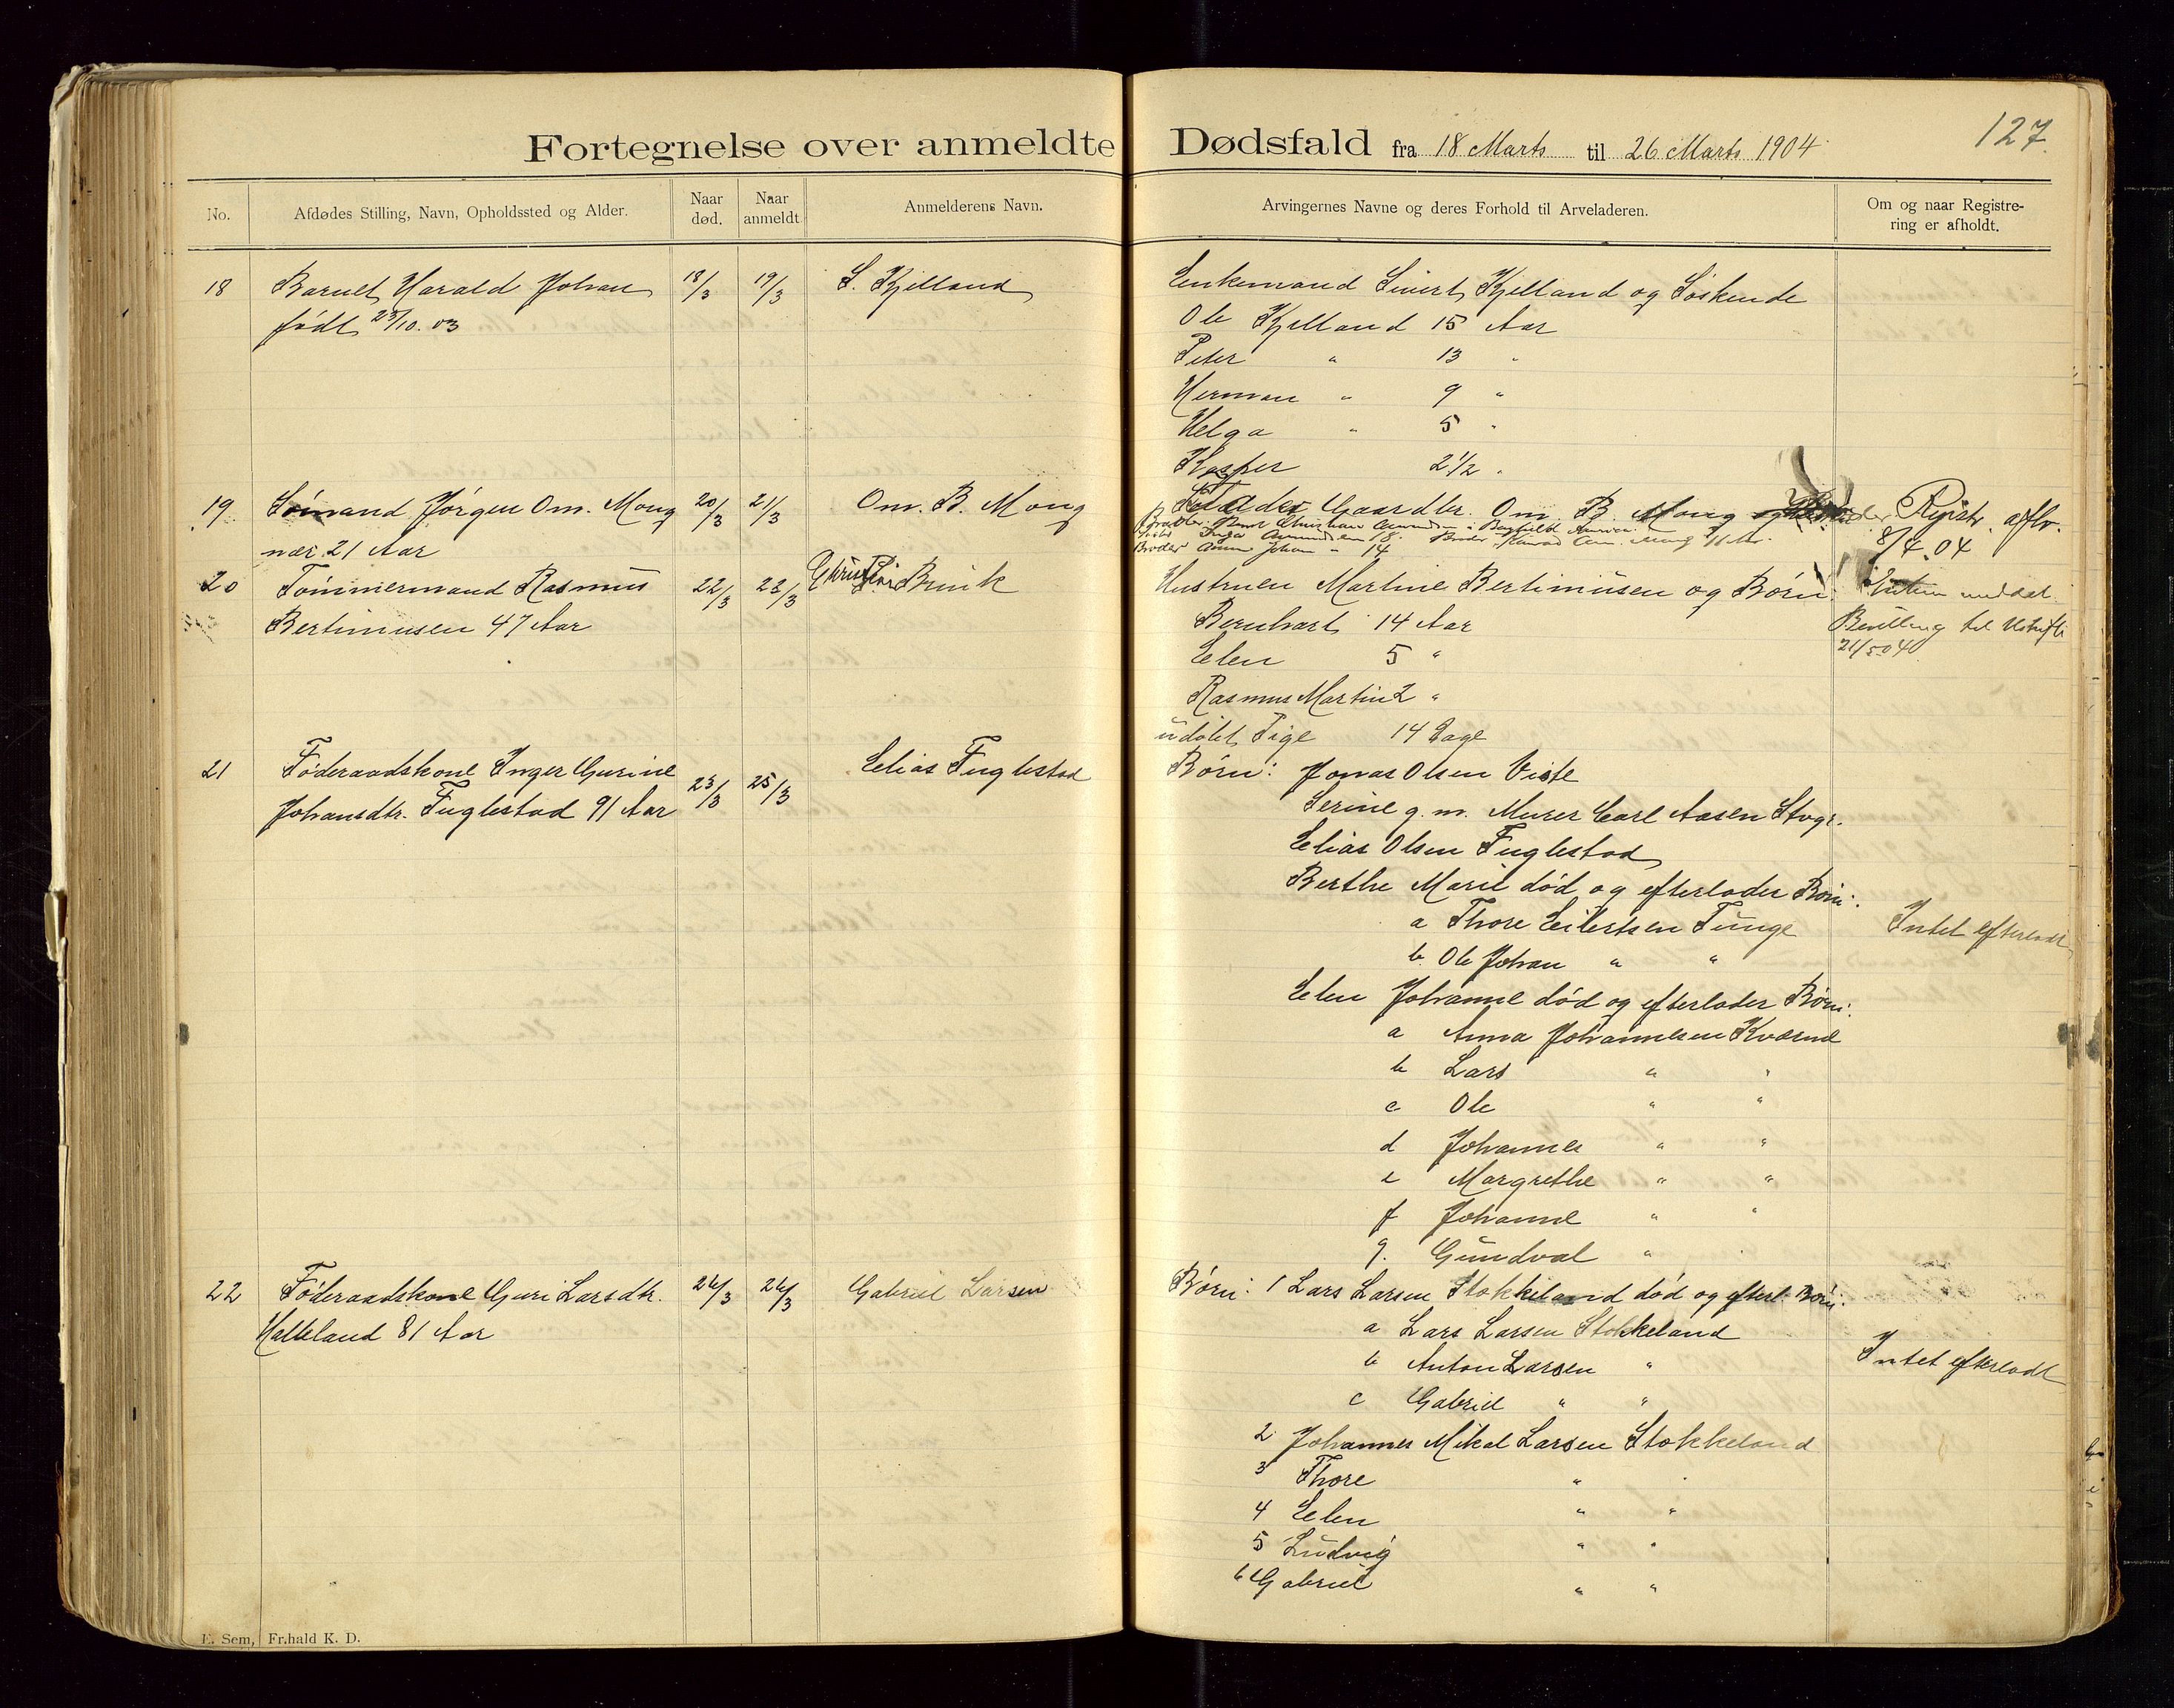 Fortegnelse over anmeldte Dødsfald fra 18 Marts til 26 Marts 1904
127
No.
Afdødes Stilling, Navn, Opholdssted og Alder.
Naar død.
Naar anmeldt.
Anmelderens Navn.
Arvingernes Navne og deres Forhold til Arveladeren.
Om og naar Registrering er afholdt.
18 Barnet Harald Johan 18/3 19/3 S. Kjelland
født 23/10.03
Enkemand Sivert Kjelland og Søskende
Ole Kjelland 15 Aar
Peter " 13 "
Herman " 9 "
Helga " 5 "
Kasper 2 1/2 "
19 Sømand Jørgen Om. Mong 20/3 21/3 Om. B. Mong
nær 21 Aar
Fader Gaardbr. Om B. Mong
Inga 18.
Broder Johan " 14
Registr. afh.
8/4.04
20 Tømmermand Rasmus 22/3 23/3 Brink
Bertinussen 47 Aar
Hustruen Martine Bertinussen og Børn:
Bernhart 14 Aar
Elen 5 "
Rasmus Martin 2 "
udøbt Pige 14 Dage
Enken meddelt
Bevilling til Uskifte
21/5 04
21 Føderaadskone Inger Gurine 23/3 25/3 Elias Fuglestad
Johansdtr. Fuglestad 91 Aar
Børn: Jonas Olsen Viste
Serine g. m. Murer Carl Aasen Stvgr.
Elias Olsen Fuglestad
Berthe Marie død og efterlader Børn:
a Thore Eilertsen Tunge
b. Ole Johan " "
Intet efterladt
Elen Johanne død og efterlader Børn:
a Anna Johannesen Kværne
b Lars " "
c Ole " "
d Johannes " "
e Margrethe " "
f Johanne " "
g. Gundval "
22 Føderaadskone Guri Larsdtr. 26/3 26/3 Gabriel Larsen
Helleland 81 Aar
Børn: 1 Lars Larsen Stokkeland død og efterl. Børn:
a Lars Larsen Stokkeland
b Anton Larsen "
c Gabriel " "
Intet efterladt
2 Johannes Mikal Larsen Stokkeland
3 Thore " "
4 Elen " "
5 Ludvig " "
6 Gabriel " "
E. Sem, Fr.hald K. D.